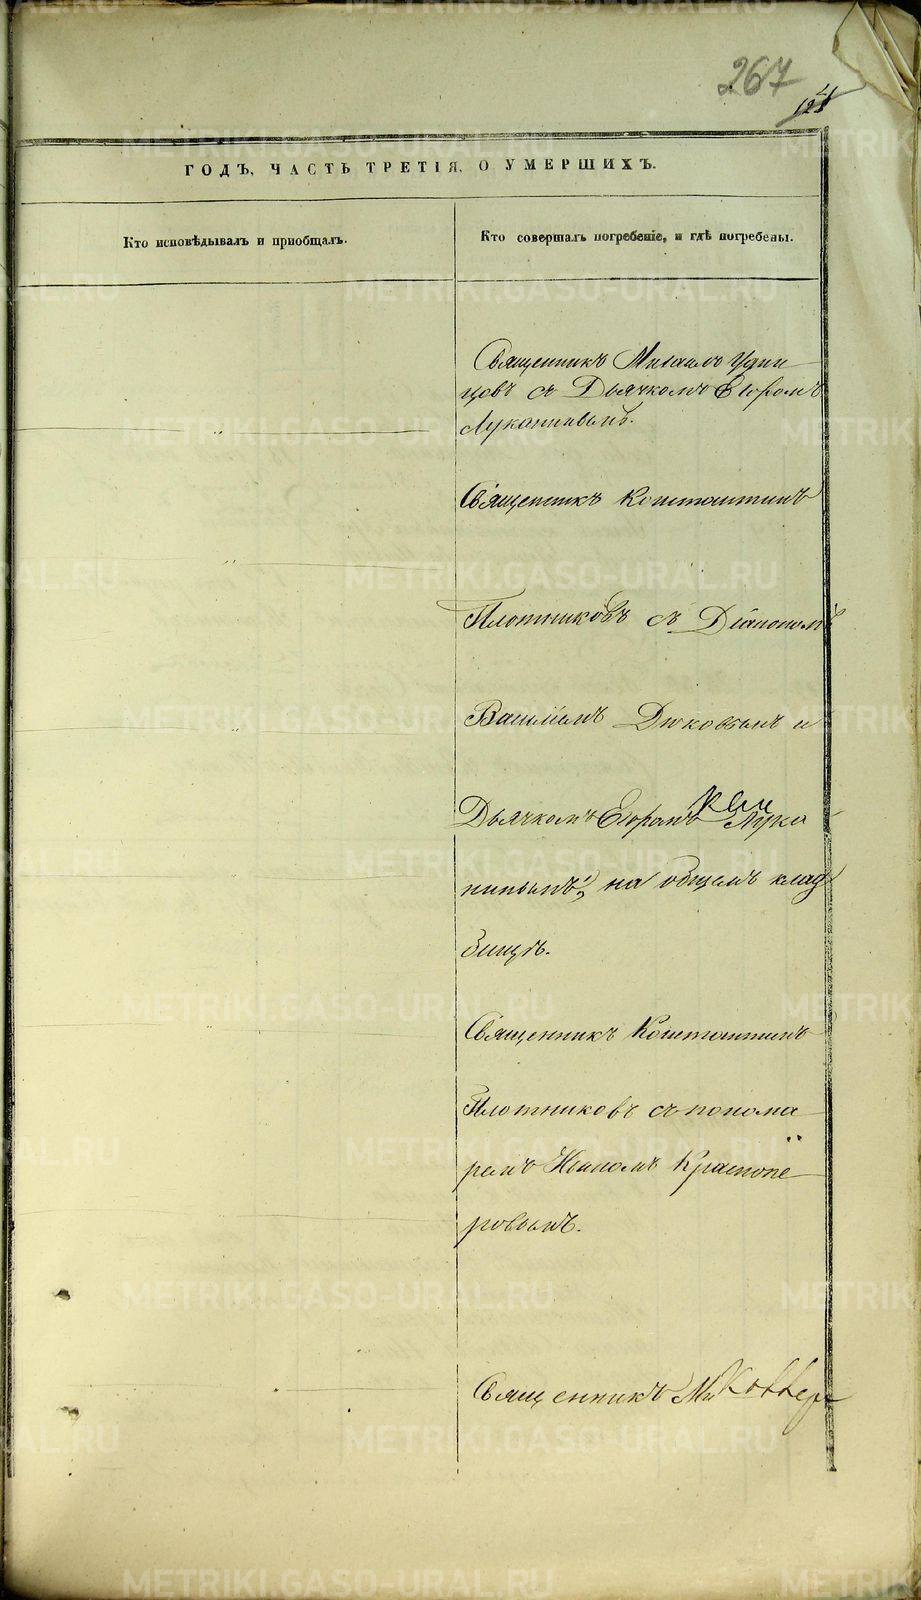 267
124
ГОДЪ, ЧАСТЬ ТРЕТІЯ, О УМЕРШИХЪ.
Кто исповѣдывалъ и пріобщалъ.
Кто совершалъ погребеніе, и гдѣ погребены.
Священникъ Михаилъ Удин
цовъ съ Дьячкомъ Егоромъ
Лукан
Священникъ Константинъ
Плотниковъ съ Діакономъ
Василіемъ Дюковымъ и
Дьячкомъ Егоромъ Лука
нинымъ, на общемъ клад
бищѣ.
Священникъ Константинъ
Плотниковъ съ понома
ремъ Краснопе
ровымъ.
Священникъ Ми
METRIKI.GASO-URAL.RU